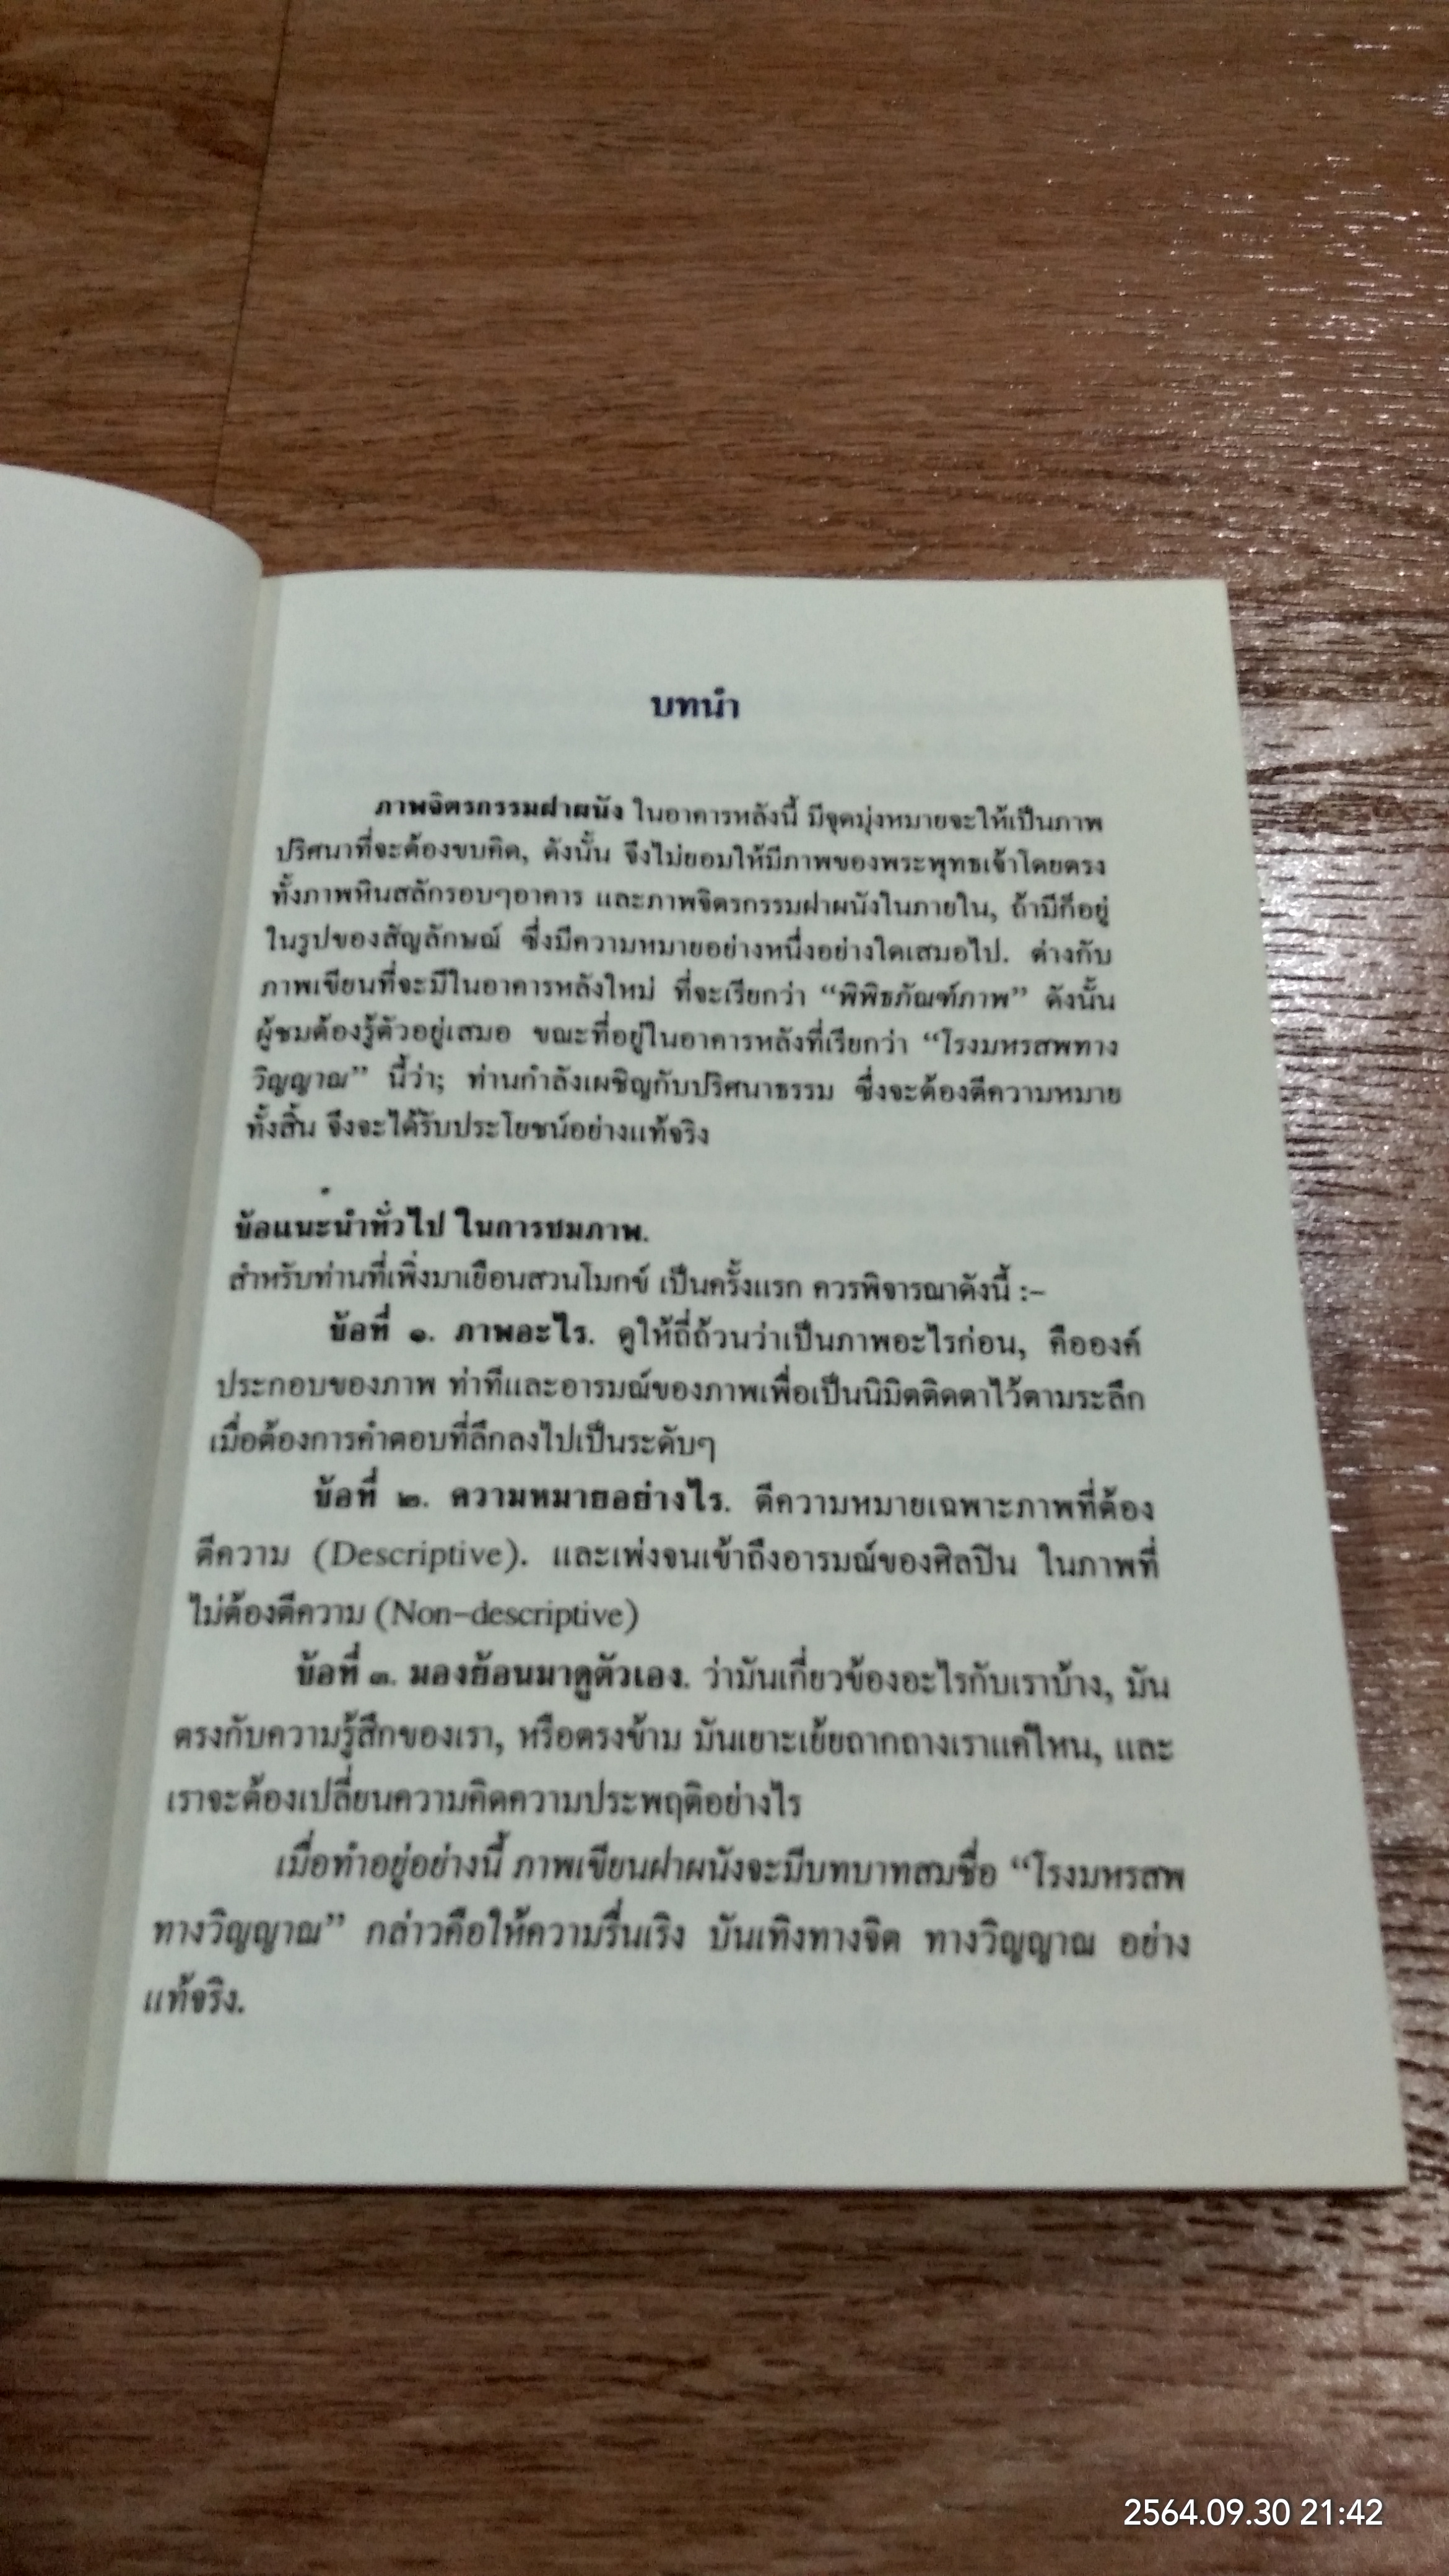 บทนำ
ภาพจิตรกรรมฝาผนัง ในอาคารหลังนี้ มีจุดมุ่งหมายจะให้เป็นภาพ
ปริศนาที่จะต้องขบคิด, ดังนั้น จึงไม่ยอมให้มีภาพของพระพุทธเจ้าโดยตรง
ทั้งภาพหินสลักรอบๆอาคาร และภาพจิตรกรรมฝาผนังในภายใน, ถ้ามีก็อยู่
ในรูปของสัญลักษณ์ ซึ่งมีความหมายอย่างหนึ่งอย่างใดเสมอไป. ต่างกับ
ภาพเขียนที่จะมีในอาคารหลังใหม่ ที่จะเรียกว่า “พิพิธภัณฑ์ภาพ” ดังนั้น
ผู้ชมต้องรู้ตัวอยู่เสมอ ขณะที่อยู่ในอาคารหลังที่เรียกว่า “โรงมหรสพทาง
วิญญาณ” นี้ว่า; ท่านกำลังเผชิญกับปริศนาธรรม ซึ่งจะต้องตีความหมาย
ทั้งสิ้น จึงจะได้รับประโยชน์อย่างแท้จริง
ข้อแนะนำทั่วไป ในการชมภาพ.
สำหรับท่านที่เพิ่งมาเยือนสวนโมกข์ เป็นครั้งแรก ควรพิจารณาดังนี้ :-
ข้อที่ ๑. ภาพอะไร. ดูให้ถี่ถ้วนว่าเป็นภาพอะไรก่อน, คือองค์
ประกอบของภาพ ท่าทีและอารมณ์ของภาพเพื่อเป็นนิมิตติดตาไว้ตามระลึก
เมื่อต้องการคำตอบที่ลึกลงไปเป็นระดับๆ
ข้อที่ ๒. ความหมายอย่างไร. ตีความหมายเฉพาะภาพที่ต้อง
ตีความ (Descriptive). และเพ่งจนเข้าถึงอารมณ์ของศิลปิน ในภาพที่
ไม่ต้องตีความ (Non-descriptive)
ข้อที่ ๓. มองย้อนมาดูตัวเอง. ว่ามันเกี่ยวข้องอะไรกับเราบ้าง, มัน
ตรงกับความรู้สึกของเรา, หรือตรงข้าม มันเยาะเย้ยถากถางเราแค่ไหน, และ
เราจะต้องเปลี่ยนความคิดความประพฤติอย่างไร
เมื่อทำอยู่อย่างนี้ ภาพเขียนฝาผนังจะมีบทบาทสมชื่อ “โรงมหรสพ
ทางวิญญาณ” กล่าวคือให้ความรื่นเริง บันเทิงทางจิต ทางวิญญาณ อย่าง
แท้จริง.
2564.09.30 21:42